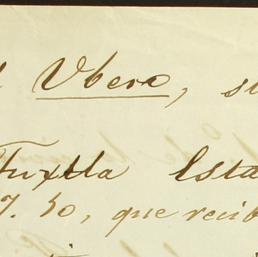 Ubero, s
Tuxtla Esta
7.50, que recib